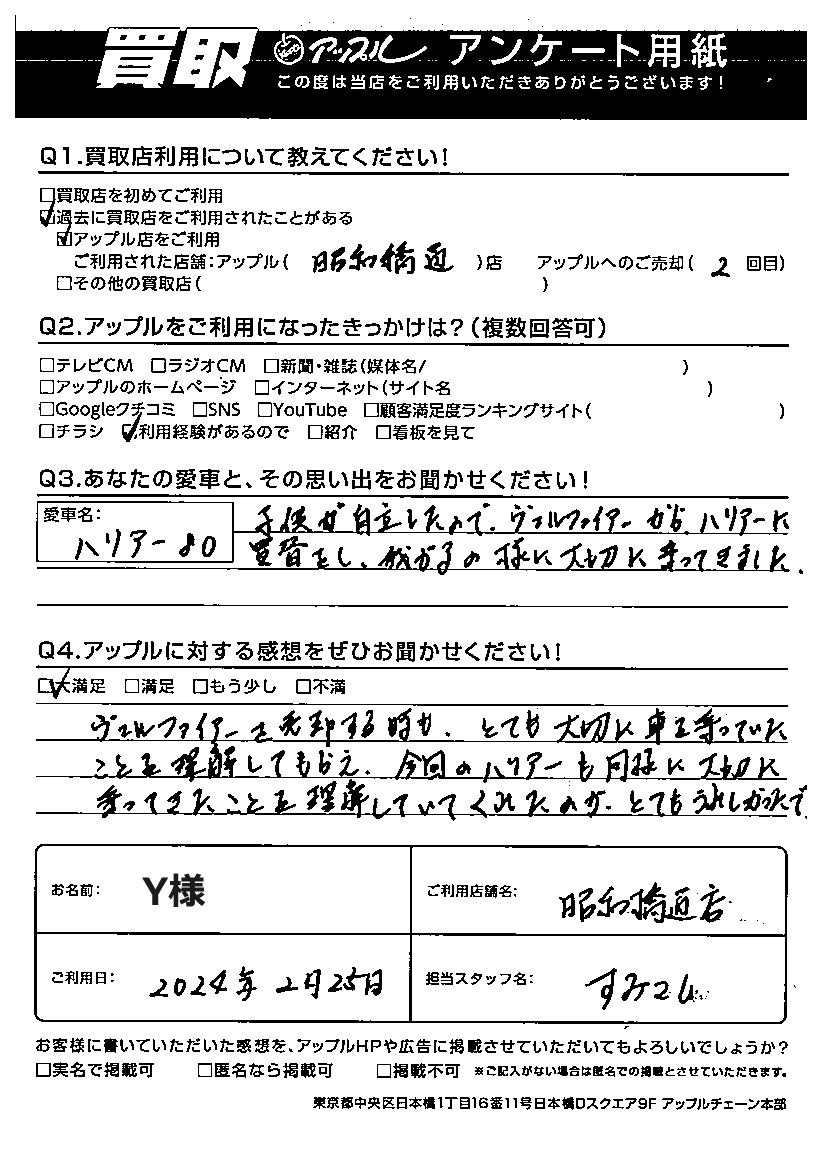 買取 アップル アンケート用紙
この度は当店をご利用いただきありがとうございます!
Q1.買取店利用について教えてください!
□買取店を初めてご利用
☑過去に買取店をご利用されたことがある
☑アップル店をご利用
ご利用された店舗:アップル( 昭和橋通 )店 アップルへのご売却( 2 回目)
□その他の買取店( )
Q2.アップルをご利用になったきっかけは?(複数回答可)
□テレビCM □ラジオCM □新聞・雑誌(媒体名/ )
□アップルのホームページ □インターネット(サイト名 )
□Googleクチコミ □SNS □YouTube □顧客満足度ランキングサイト( )
□チラシ ☑利用経験があるので □紹介 □看板を見て
Q3.あなたの愛車と、その思い出をお聞かせください!
愛車名:
ハリアー80
子供が自立したので、ヴェルファイアーから、ハリアーに
買替をし、我が子の様に大切に乗ってきました。
Q4.アップルに対する感想をぜひお聞かせください!
☑大満足 □満足 □もう少し □不満
ヴェルファイアーを売却する時も、とても大切に車を乗っていた
ことを理解してもらえ、今回のハリアーも同様に大切に
乗ってきたことを理解していてくれたのが、とてもうれしかったで
お名前: Y様
ご利用店舗名: 昭和橋通店
ご利用日: 2024年2月25日
担当スタッフ名: すみこし
お客様に書いていただいた感想を、アップルHPや広告に掲載させていただいてもよろしいでしょうか?
□実名で掲載可 □匿名なら掲載可 □掲載不可 ※ご記入がない場合は匿名での掲載とさせていただきます。
東京都中央区日本橋1丁目16番11号日本橋Dスクエア9F アップルチェーン本部